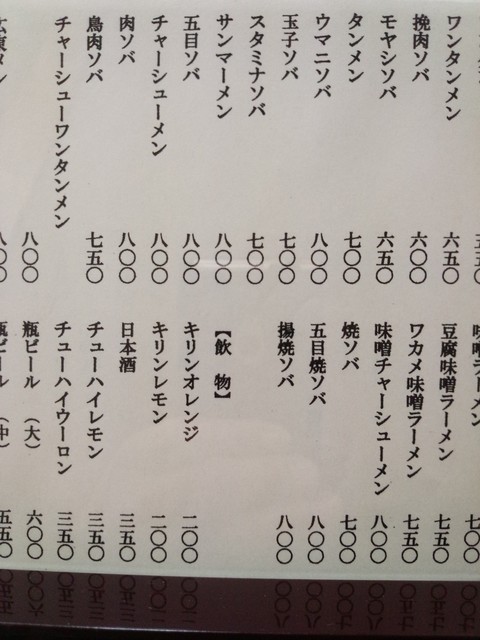 ワンタンメン 六五〇
挽肉ソバ 六〇〇
モヤシソバ 六五〇
タンメン 七〇〇
ウマニソバ 八〇〇
玉子ソバ 七〇〇
スタミナソバ 七〇〇
サンマーメン 八〇〇
五目ソバ 八〇〇
チャーシューメン 八〇〇
肉ソバ 八〇〇
鳥肉ソバ 七五〇
チャーシューワンタンメン 八〇〇
味噌ラーメン 七〇〇
豆腐味噌ラーメン 七五〇
ワカメ味噌ラーメン 七五〇
味噌チャーシューメン 八〇〇
焼ソバ 七〇〇
五目焼ソバ 八〇〇
揚焼ソバ 八〇〇
【飲 物】
キリンオレンジ 二〇〇
キリンレモン 二〇〇
日本酒 三五〇
チューハイレモン 三五〇
チューハイウーロン 三五〇
瓶ビール (大) 六〇〇
瓶ビール (中) 五五〇